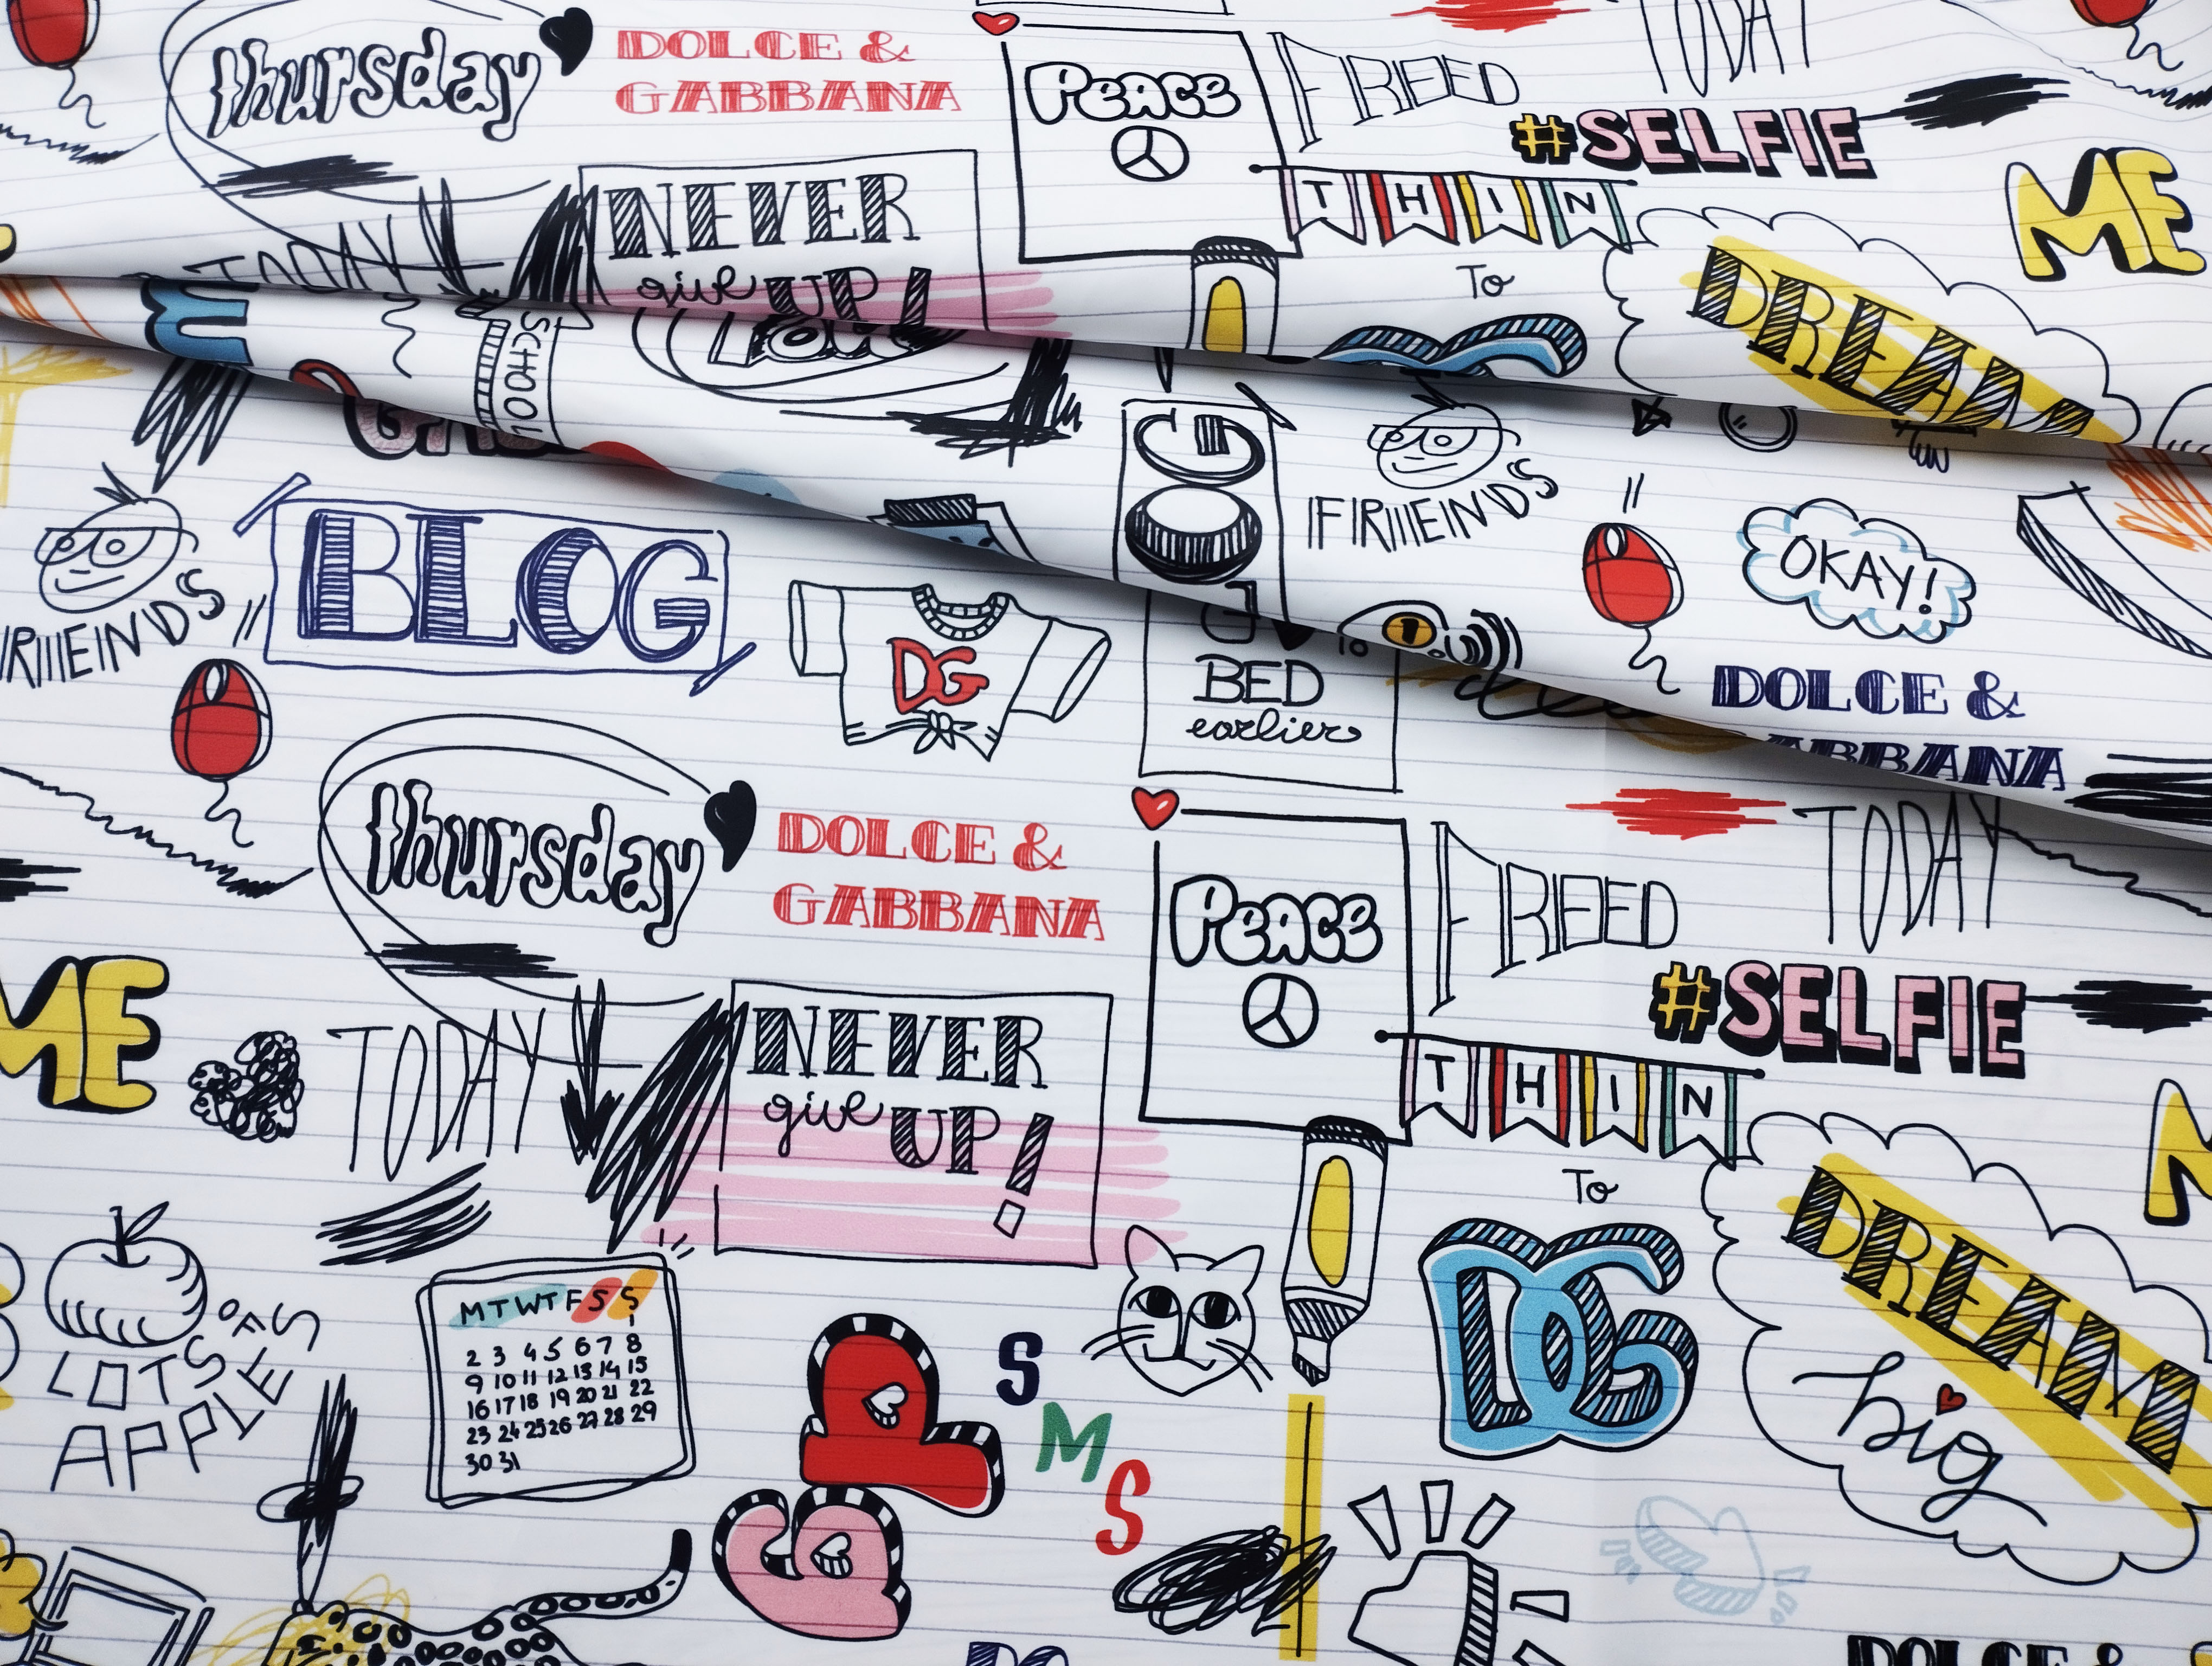 thursday
DOLCE &
GABBANA
Peace
FREED
TODAY
#SELFIE
THIN
To
ME
DREAM
TODAY
NEVER
give UP!
SCHOOL
GO
FRIENDS
OKAY!
DOLCE &
GABBANA
FRIENDS
BLOG
DG
to
BED
earlier
thursday
DOLCE &
GABBANA
Peace
FREED
TODAY
#SELFIE
THIN
To
ME
TODAY
NEVER
give UP!
DREAM
big
DG
LOTS OF
APPLES
M T W T F S S
1
2 3 4 5 6 7 8
9 10 11 12 13 14 15
16 17 18 19 20 21 22
23 24 25 26 27 28 29
30 31
S
M
S
DG
DOLCE &